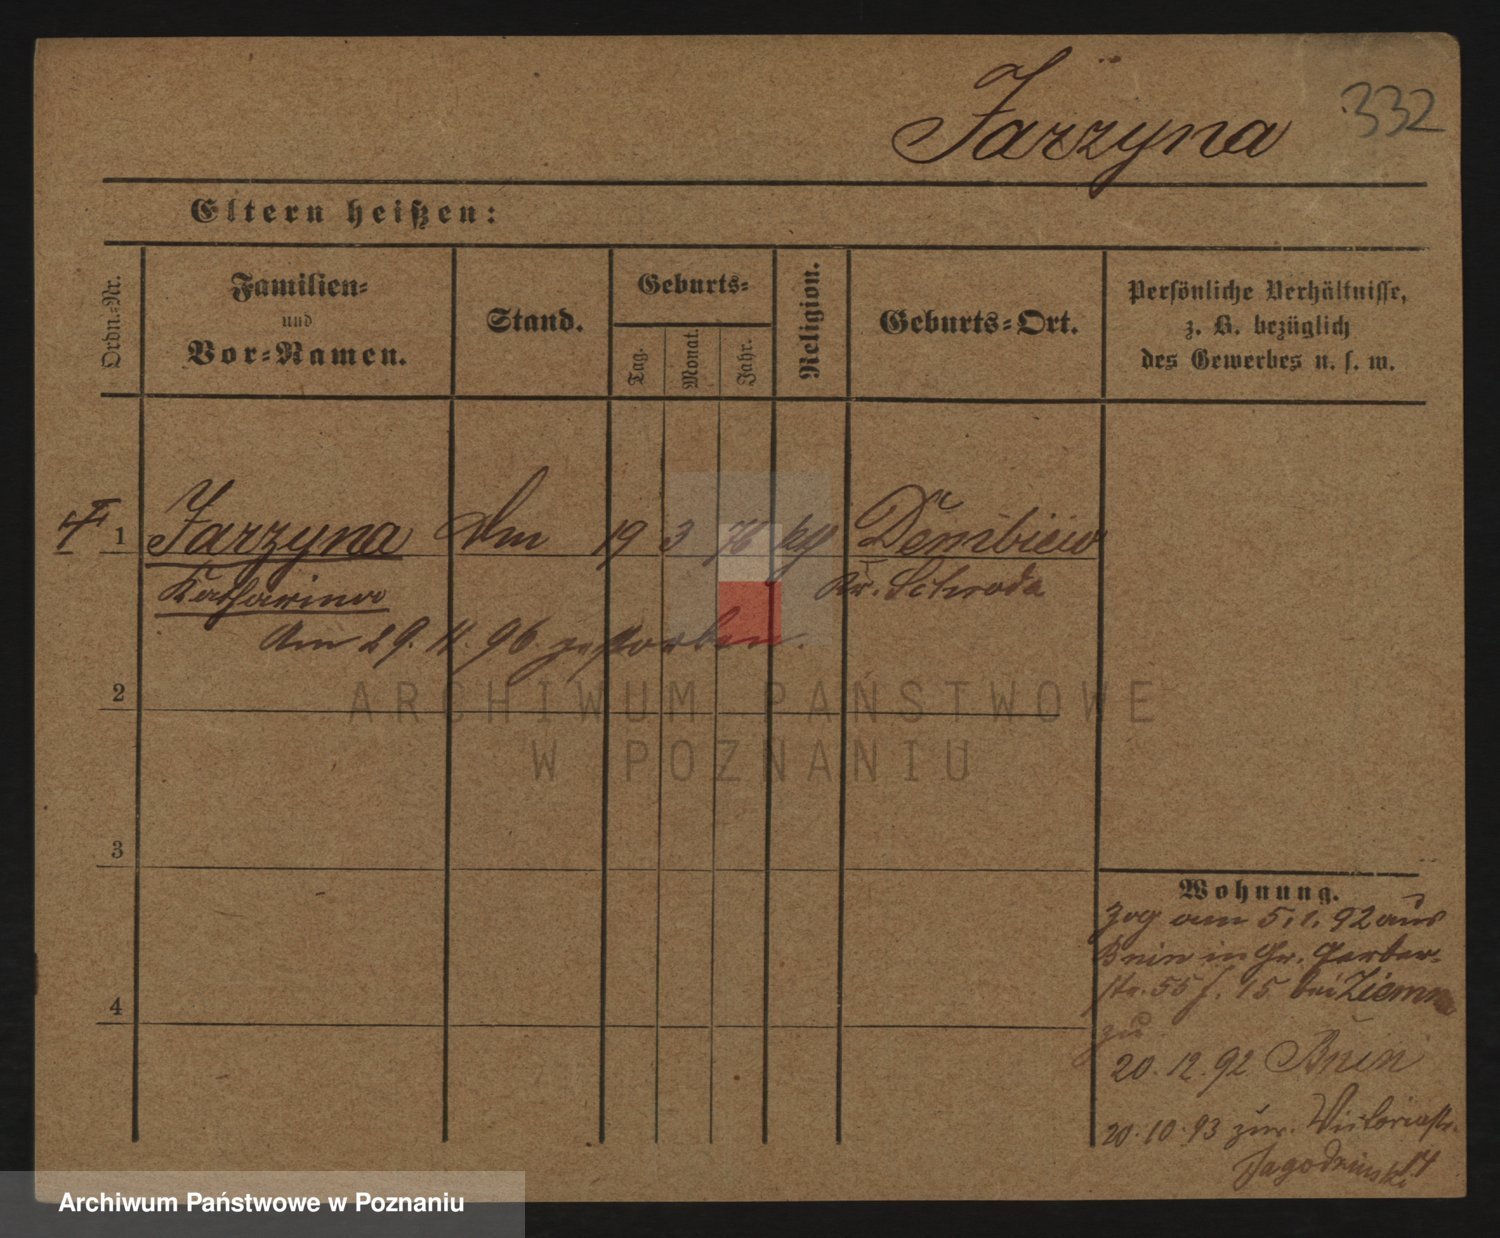 Jarzyna 332
Eltern heißen:
Ordn.-Nr.
Familien-
und
Vor-Namen.
Stand.
Geburts-
Tag.
Monat.
Jahr.
Religion.
Geburts-Ort.
Persönliche Verhältnisse,
z. B. bezüglich
des Gewerbes u. s. w.
1 Jarzyna 19 3 76 Dembicw
Katharina Kr. Schroda
Am 29. 11. 96. gestorben.
2
3
4
Wohnung.
Zog am 5.1.92 aus
Bnin in Gr. Gerber-
str. 55 f. 15 bei
zu
20.12.92 Bnin
20.10.93 zur. Victoriastr.
Jagodzinski 14
ARCHIWUM PAŃSTWOWE
W POZNANIU
Archiwum Państwowe w Poznaniu